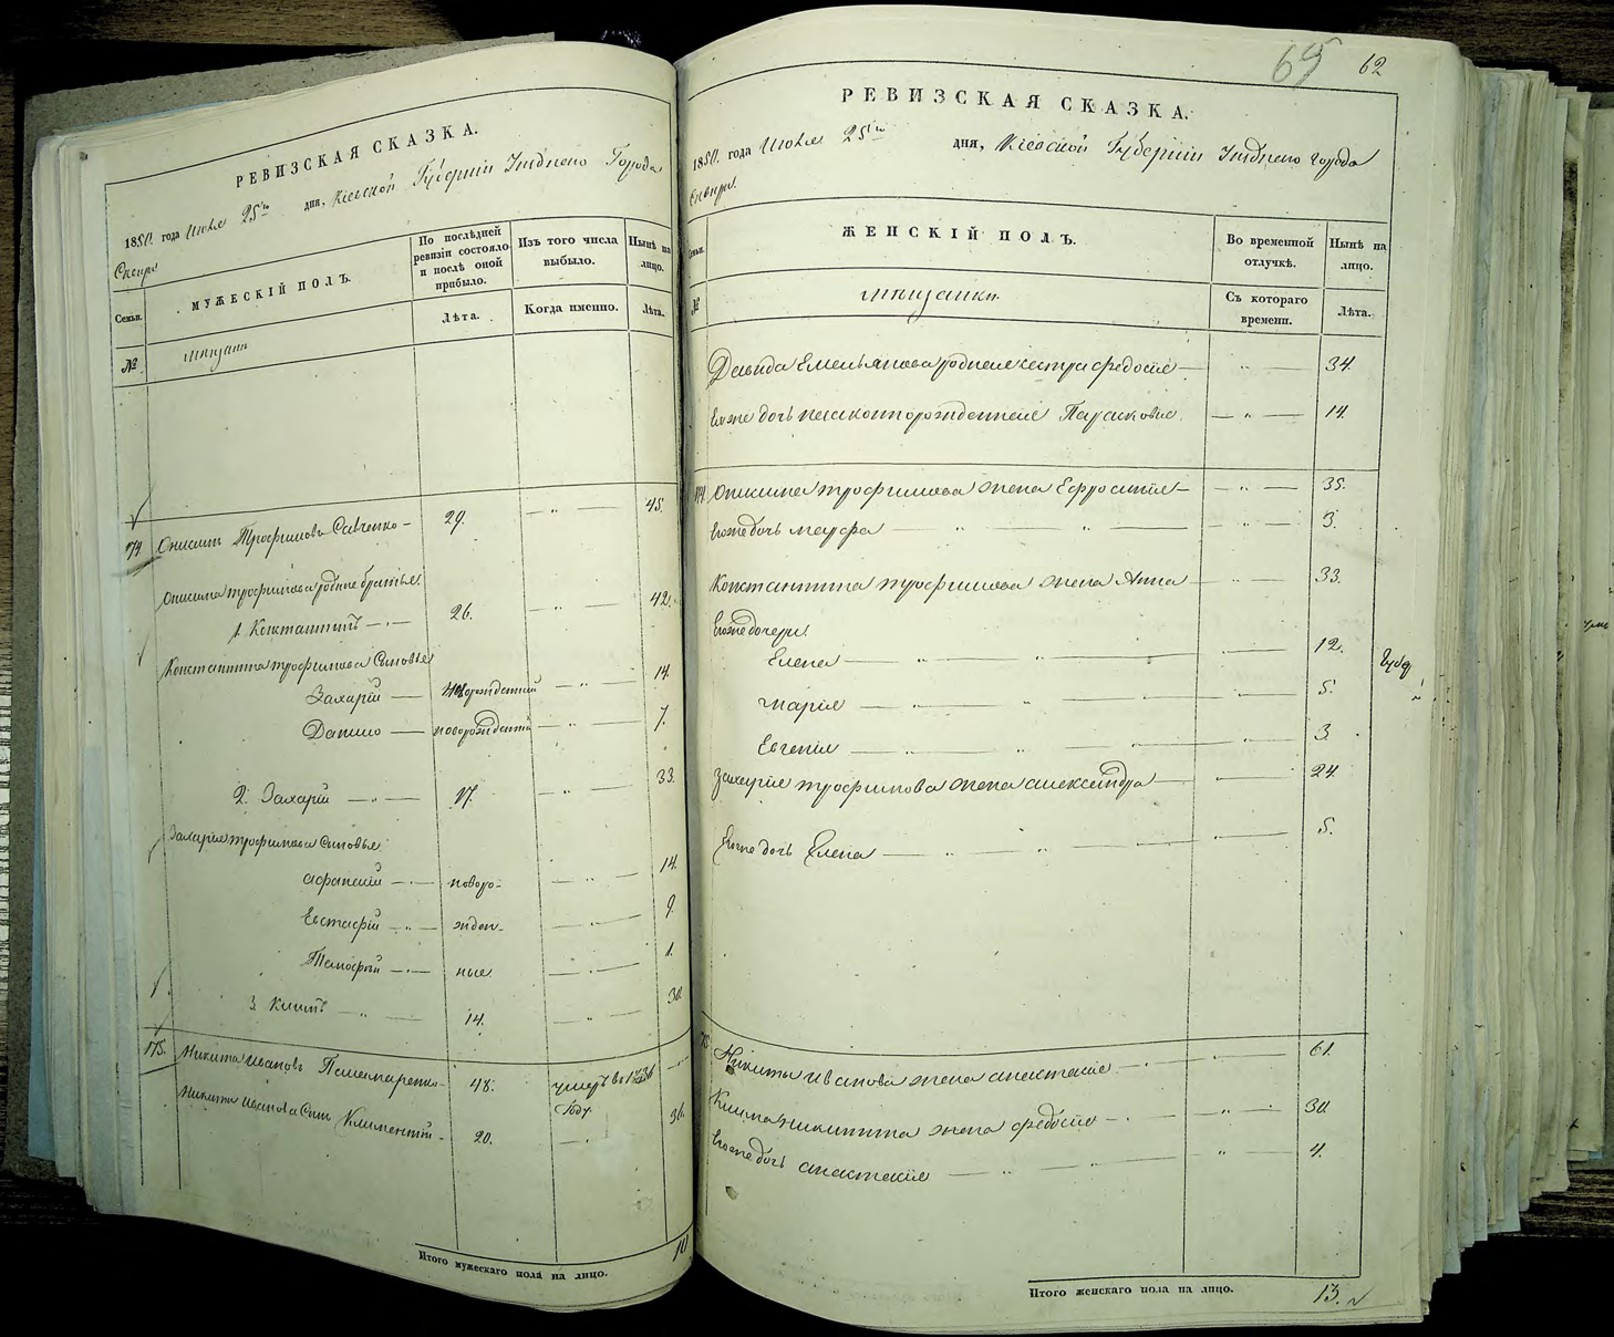 РЕВИЗСКАЯ СКАЗКА.
1850. года Июля 25го дня, Кіевской Губерніи Уѣзднаго Города
Сквири
Семьи.
МУЖЕСКІЙ ПОЛЪ.
По послѣдней ревизіи состояло и послѣ оной прибыло.
Изъ того числа выбыло.
Нынѣ на лицо.
№
мѣщане
Лѣта.
Когда именно.
Лѣта.
74 Онисимъ Трофимовъ Савченко — 29. — „ — 45.
Онисима Трофимова родные братья
1. Константинъ — „ — 26. — „ — 42.
Константина Трофимова Сыновья
Захарій — новорожденный — „ — 14.
Данило — новорожденный — „ — 7.
2. Захарій — „ — 17. — „ — 33.
Захарія Трофимова Сыновья
Афанасій — „ — новоро- — „ — 14.
Евстафій — „ — жден- — „ — 9.
Тимофей — „ — ные. — „ — 1.
3 Климъ — „ — 14. — „ — 30.
175. Никита Ивановъ Паламаренко — 48. умеръ въ 1836 году —
Никиты Иванова Сынъ Климентій — 20. — „ — 36.
Итого мужескаго пола на лицо. 10
65 62
РЕВИЗСКАЯ СКАЗКА.
1850. года Июля 25го дня, Кіевской Губерніи Уѣзднаго города
Сквири.
Семьи.
ЖЕНСКІЙ ПОЛЪ.
Во временной отлучкѣ.
Нынѣ на лицо.
№
мѣщанки.
Съ котораго времени.
Лѣта.
Давида Емельянова родная сестра Федосія — „ — 34.
Еяже дочь незаконнорожденная Параковія — „ — 14.
174 Онисима Трофимова жена Ефросинія — „ — 35.
Егоже дочь Мауфа — „ — „ — „ — 3.
Константина Трофимова жена Анна — „ — 33.
Егоже дочери
Елена — „ — „ — 12.
Марія — „ — „ — 5.
Евгенія — „ — „ — 3.
Захарія Трофимова жена Александра — 24.
Егоже дочь Елена — „ — „ — 5.
75 Никиты Иванова жена Анастасія — „ — 61.
Клима Никитина жена Федосія — „ — „ — 30.
Егоже дочь Анастасія — „ — „ — „ — 4.
Итого женскаго пола на лицо. 13.